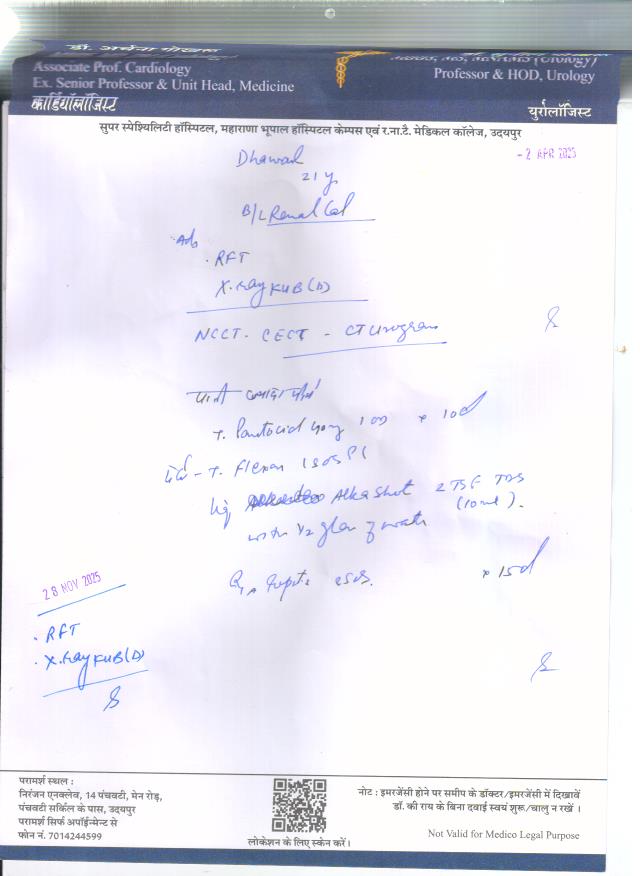 डॉ. अर्चना गोखरू
Associate Prof. Cardiology
Ex. Senior Professor & Unit Head, Medicine
कार्डियोलॉजिस्ट
(UROLOGY)
Professor & HOD, Urology
युरोलॉजिस्ट
सुपर स्पेश्यिलिटी हॉस्पिटल, महाराणा भूपाल हॉस्पिटल केम्पस एवं र.ना.टै. मेडिकल कॉलेज, उदयपुर
- 2 APR 2025
Dhawal
21 y
B/L Renal Cal
Adv
. RFT
X-ray KUB (D)
NCCT - CECT - CT Urogram
पानी ज्यादा पीयें
T. Pantocid 40mg 1 OD × 10d
दर्द - T. Flexon 1 SOS
liq Alkashot 2 TSF TDS
(10 ml).
with 1/2 glass of water
SOS.
× 15d
28 NOV 2025
. RFT
. X-ray KUB (D)
परामर्श स्थल :
निरंजन एनक्लेव, 14 पंचवटी, मेन रोड़,
पंचवटी सर्किल के पास, उदयपुर
परामर्श सिर्फ अपॉईन्मेन्ट से
फोन नं. 7014244599
लोकेशन के लिए स्केन करें।
नोट : इमरजेंसी होने पर समीप के डॉक्टर/इमरजेंसी में दिखावें
डॉ. की राय के बिना दवाई स्वयं शुरू/चालु न रखें ।
Not Valid for Medico Legal Purpose